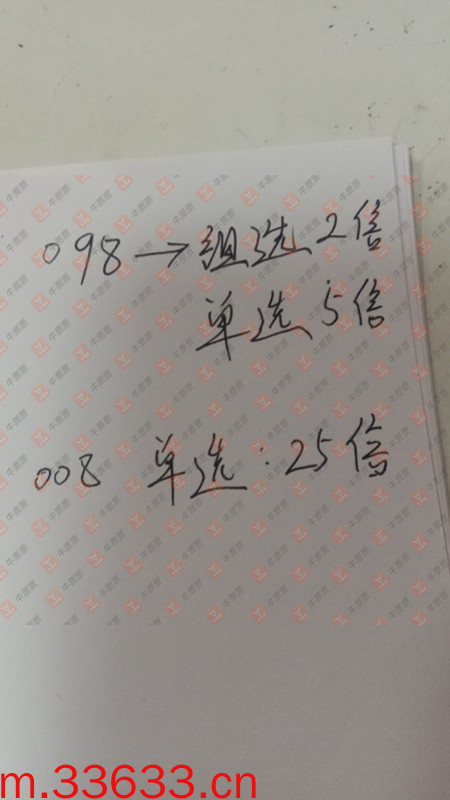 098→组选2倍
单选5倍
008 单选:25倍
m.33633.cn